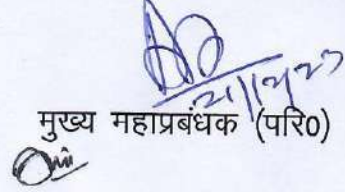 21/12/23
मुख्य महाप्रबंधक (परि०)